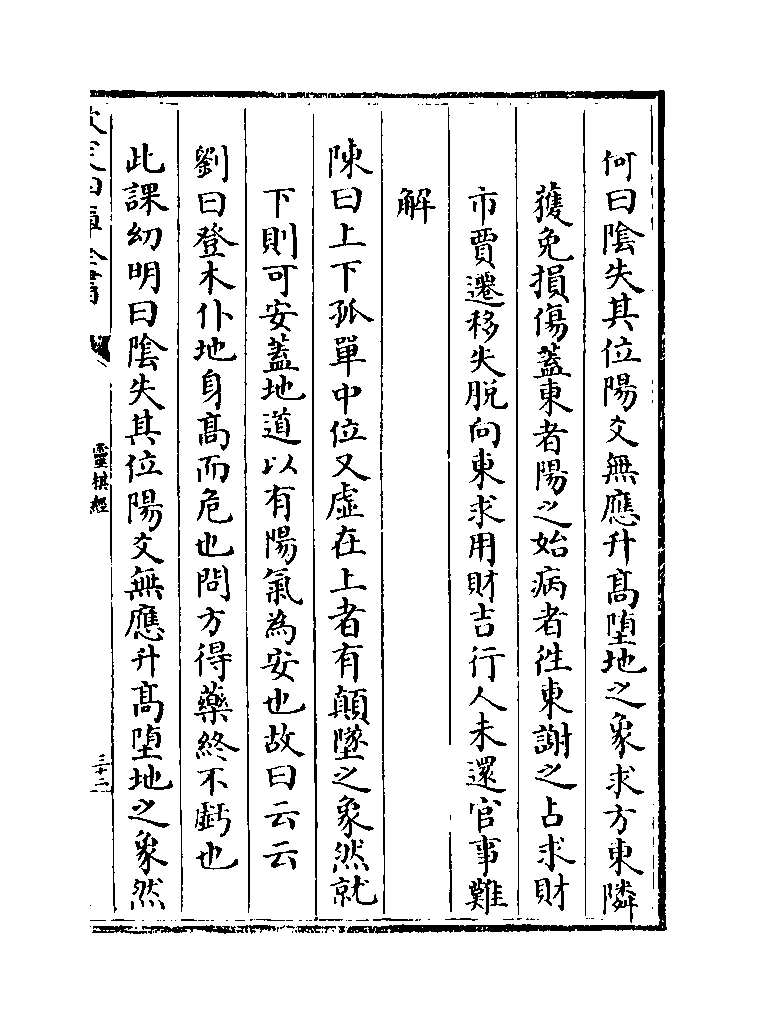 何曰陰失其位陽爻無應升髙墮地之象求方東隣
獲免損傷葢東者陽之始病者徃東謝之占求財
市賈遷移失脱向東求用財吉行人未還官事難
解
陳曰上下孤單中位又虛在上者有顛墜之象然就
下則可安葢地道以有陽氣為安也故曰云云
劉曰登木仆地身髙而危也問方得藥終不虧也
此課㓜明曰陰失其位陽爻無應升髙墮地之象然
靈棋經
三十二